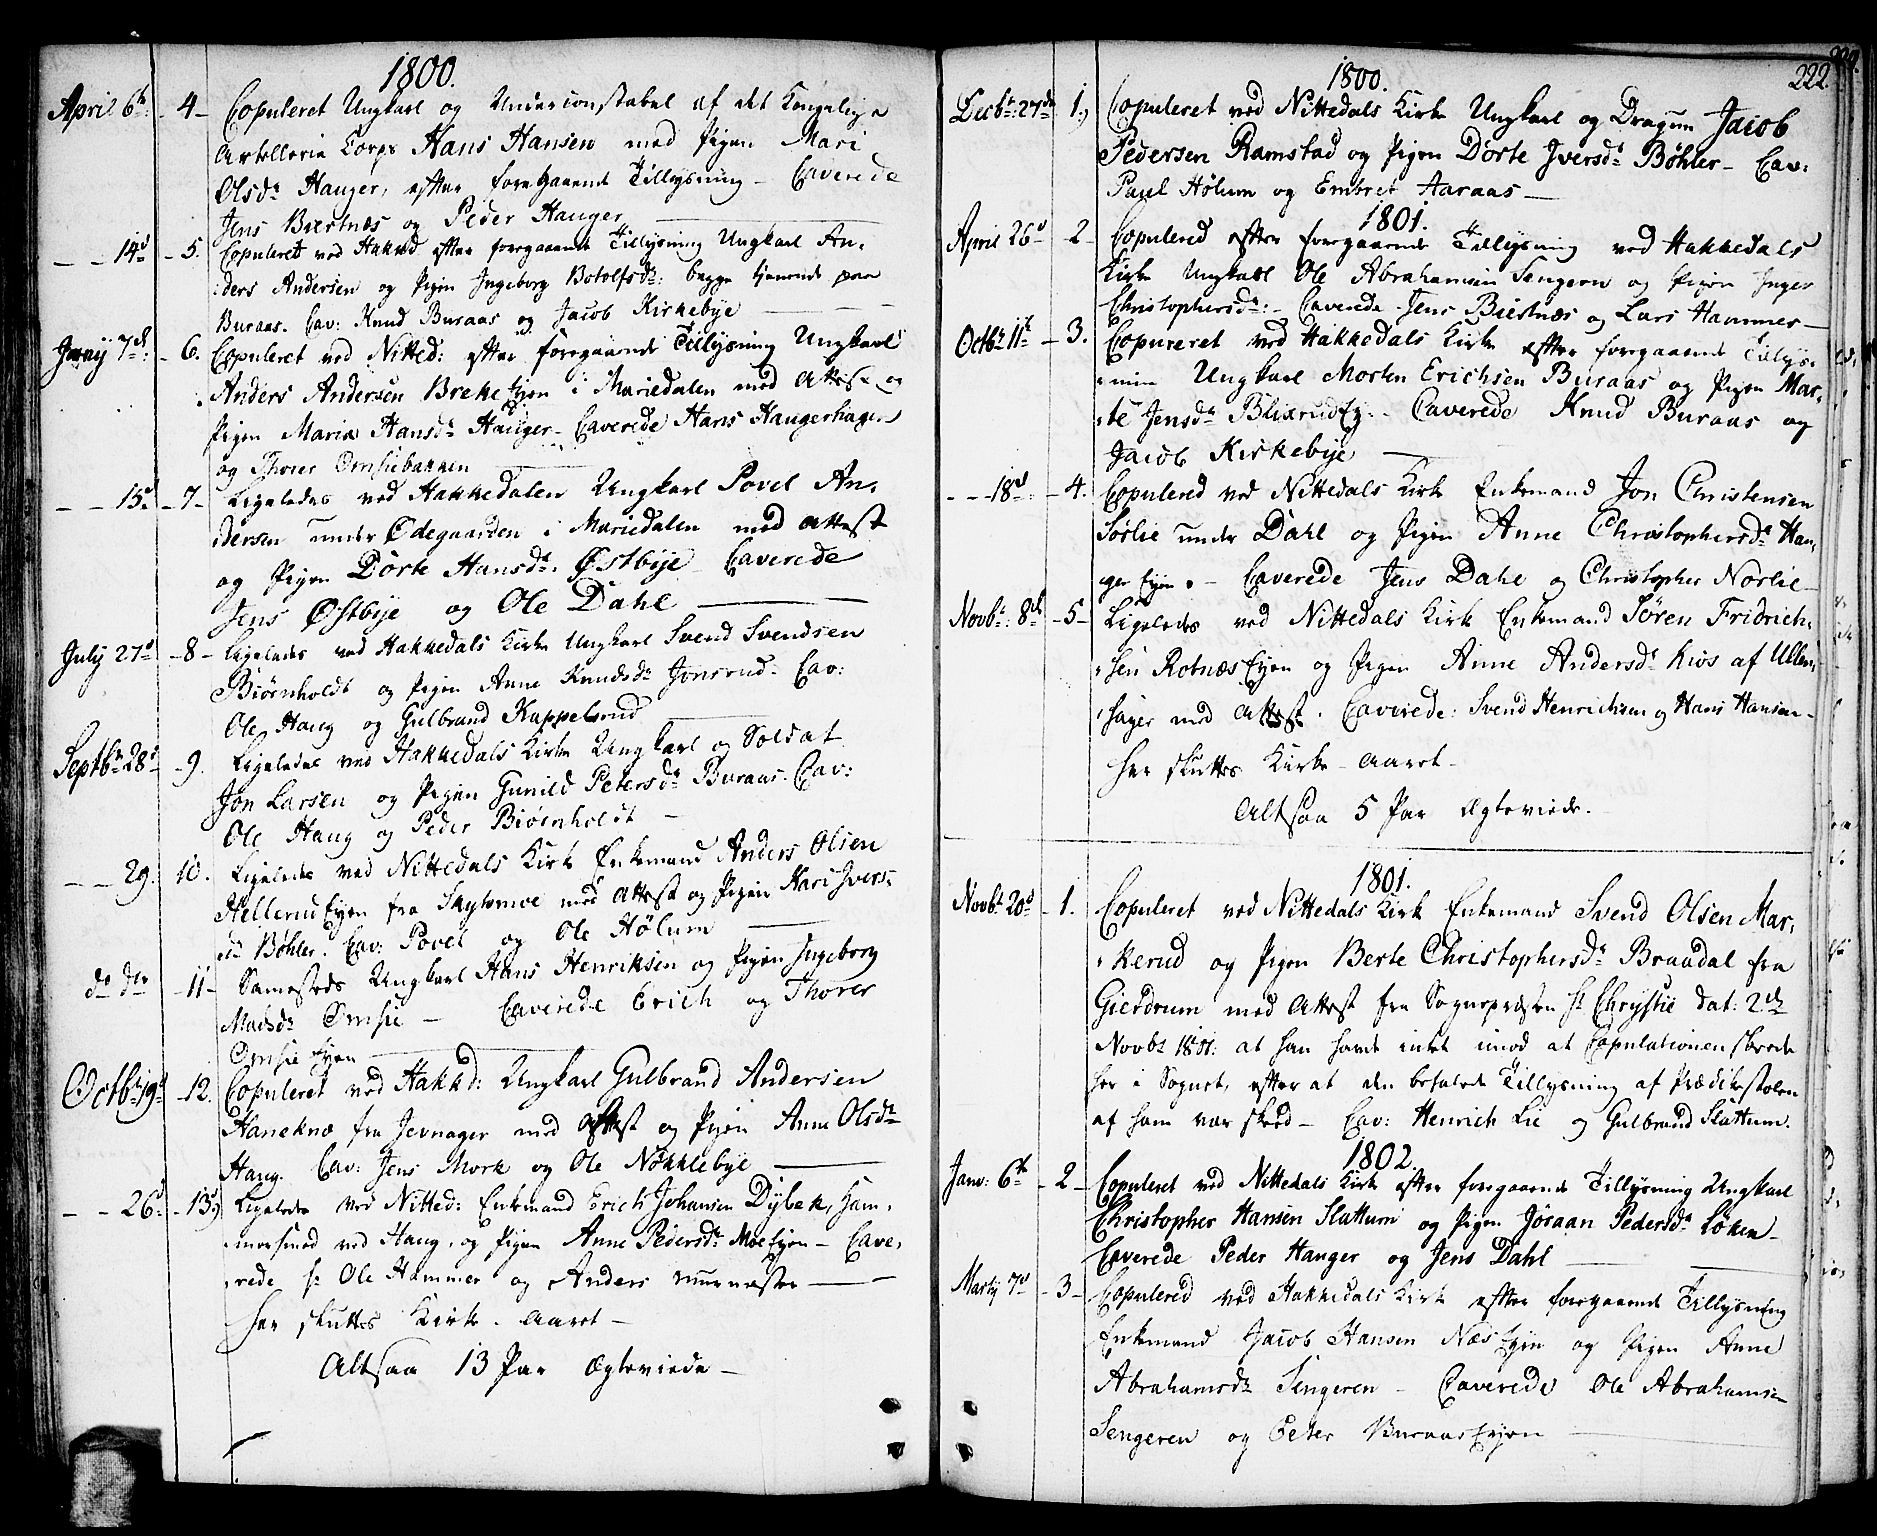 1800.
April 6te: - 4 - Copuleret Ungkarl og Underconstabel af det Kongelige
Artellerie Corps Hans Hansen med Pigen Mari
Olsdr Hauger, efter foregaaende Tillysning - Caverede
Jens Biertnæs og Peder Hauger
- - 14d - 5. Copuleret ved Hakked efter foregaaende Tillysning Ungkarl An,
,ders Andersen og Pigen Ingeborg Botolfsdr: begge tienende paa
Buraas. Cav: Knud Buraas og Jacob Kirkebye
Junij 7d: - 6. Copuleret ved Nitted: efter foregaaende Tillysning Ungkarl
Anders Andersen Breke Ejen i Mariedalen med Attest og
Pigen Maria Hansdr Hauger - Caverede Hans Haugerhagen
og Thorer Ømsiebakken
- - 15d - 7 - Ligeledes ved Hakkedalen Ungkarl Povel An,
dersen under Ødegaarden i Mariedalen med Attest
og Pigen Dorte Hansdr: Østbye Caverede
Jens Østbye og Ole Dahl
July 27d - 8 - Ligeledes ved Hakkedals Kirke Ungkarl Svend Svendsen
Biørnholdt og Pigen Anne Knudsdr Jonsrud. Cav:
Ole Haug og Gulbrand Kappelsrud
Septbr 28d - 9. Ligeledes ved Hakkedals Kirke Ungkarl og Soldat
Jon Larsen og Pigen Gunild Petersdr Buraas. Cav:
Ole Haug og Peder Biørnholdt -
- - 29. 10. Ligeledes ved Nittedals Kirke Enkemand Anders Olsen
Hellerud Ejen fra Skytsmoe med Attest og Pigen Kari Ivers-
dr Bøhler. Cav: Povel og Ole Hølum
do dto - 11 - Samesteds Ungkarl Hans Henriksen og Pigen Ingeborg
Madsdr Ømsie - Caverede Erich og Thorer
Ømsie Ejen
Octbr 19d - 12. Copuleret ved Hakkd: Ungkarl Gulbrand Andersen
Haneknæ fra Jevnager med Attest og Pigen Anne Olsdr
Haug. Cav: Jens Mork og Ole Nøkklebye
- - 26d - 13) Ligeledes ved Nitted: Enkemand Erich Johansen Dybek, Ham,
,mersmed ved Haug, og Pigen Anne Pedersdr Moe Ejen - Cave,
,rede Hr Ole Hammer og Anders muurmester
Her sluttes Kirke-Aaret -
Altsaa 13 Par Ægteviede -
222.
1800.
Decbr: 27de 1.) Copuleret ved Nittedals Kirke Ungkarl og Dragun Jacob
Pedersen Ramstad og Pigen Dorte Iversdr Bøhler - Cav:
Paul Hølum og Embret Aaraas -
1801.
April 26d - 2 - Copulered efter foregaaende Tillysning ved Hakkedals
Kirke Ungkarl Ole Abrahamsen Sengeren og Pigen Inger
Christophersdr: - Caverede Jens Biertnæs og Lars Hammer -
Octbr 11te - 3. Copuleret ved Hakkedals Kirke efter foregaaende Tillys-
,ning Ungkarl Morten Erichsen Buraas og Pigen Mar,
,te Jensdr Blixrud Ej. - Caverede Knud Buraas og
Jacob Kirkebye
- - 18d: - 4. Copulered ved Nittedals Kirke Enkemand Jon Christensen
Sørlie under Dahl og Pigen Anne Christophersdr Hau,
ger Ejen. - Caverede Jens Dahl og Christopher Nordlie -
Novbr: 8de - 5 - Ligeledes ved Nittedals Kirke Enkemand Søren Fridrich,
,sen Rotnæs Ejen og Pigen Anne Andersdr Kios af Ullen,
,sager med Attest. Caverede: Svend Henrichsen og Hans Hansen -
Her sluttes Kirke-Aaret -
Altsaa 5 Par Ægteviede.
1801.
Novbr 20d - 1. Copuleret ved Nittedals Kirke Enkemand Svend Olsen Mar,
,kerud og Pigen Berte Christophersdr Braadal fra
Gierdrum med Attest fra Sognepræsten Hr Chrystie dat: 2de
Novbr 1801: at han havde intet imod at Copulationen skeede
her i Sognet, efter at den befalede Tillysning af Prædikestolen
af ham var skeed - Cav: Henrich Lie og Gulbrand Slattum.
1802.
Janv: 6te - 2 - Copuleret ved Nittedals Kirke efter foregaaende Tillysning Ungkarl
Christopher Hansen Slattum og Pigen Jøraan Pedersdr Løken -
Caverede Peder Hauger og Jens Dahl
Martij 7d - 3 - Copulered ved Hakkedals Kirke efter foregaaende Tillysning
Enkemand Jacob Hansen Næs Ejen og Pigen Anne
Abrahamsdr Sengeren - Caverede Ole Abrahams:
Sengeren og Peter Buraas Ejen